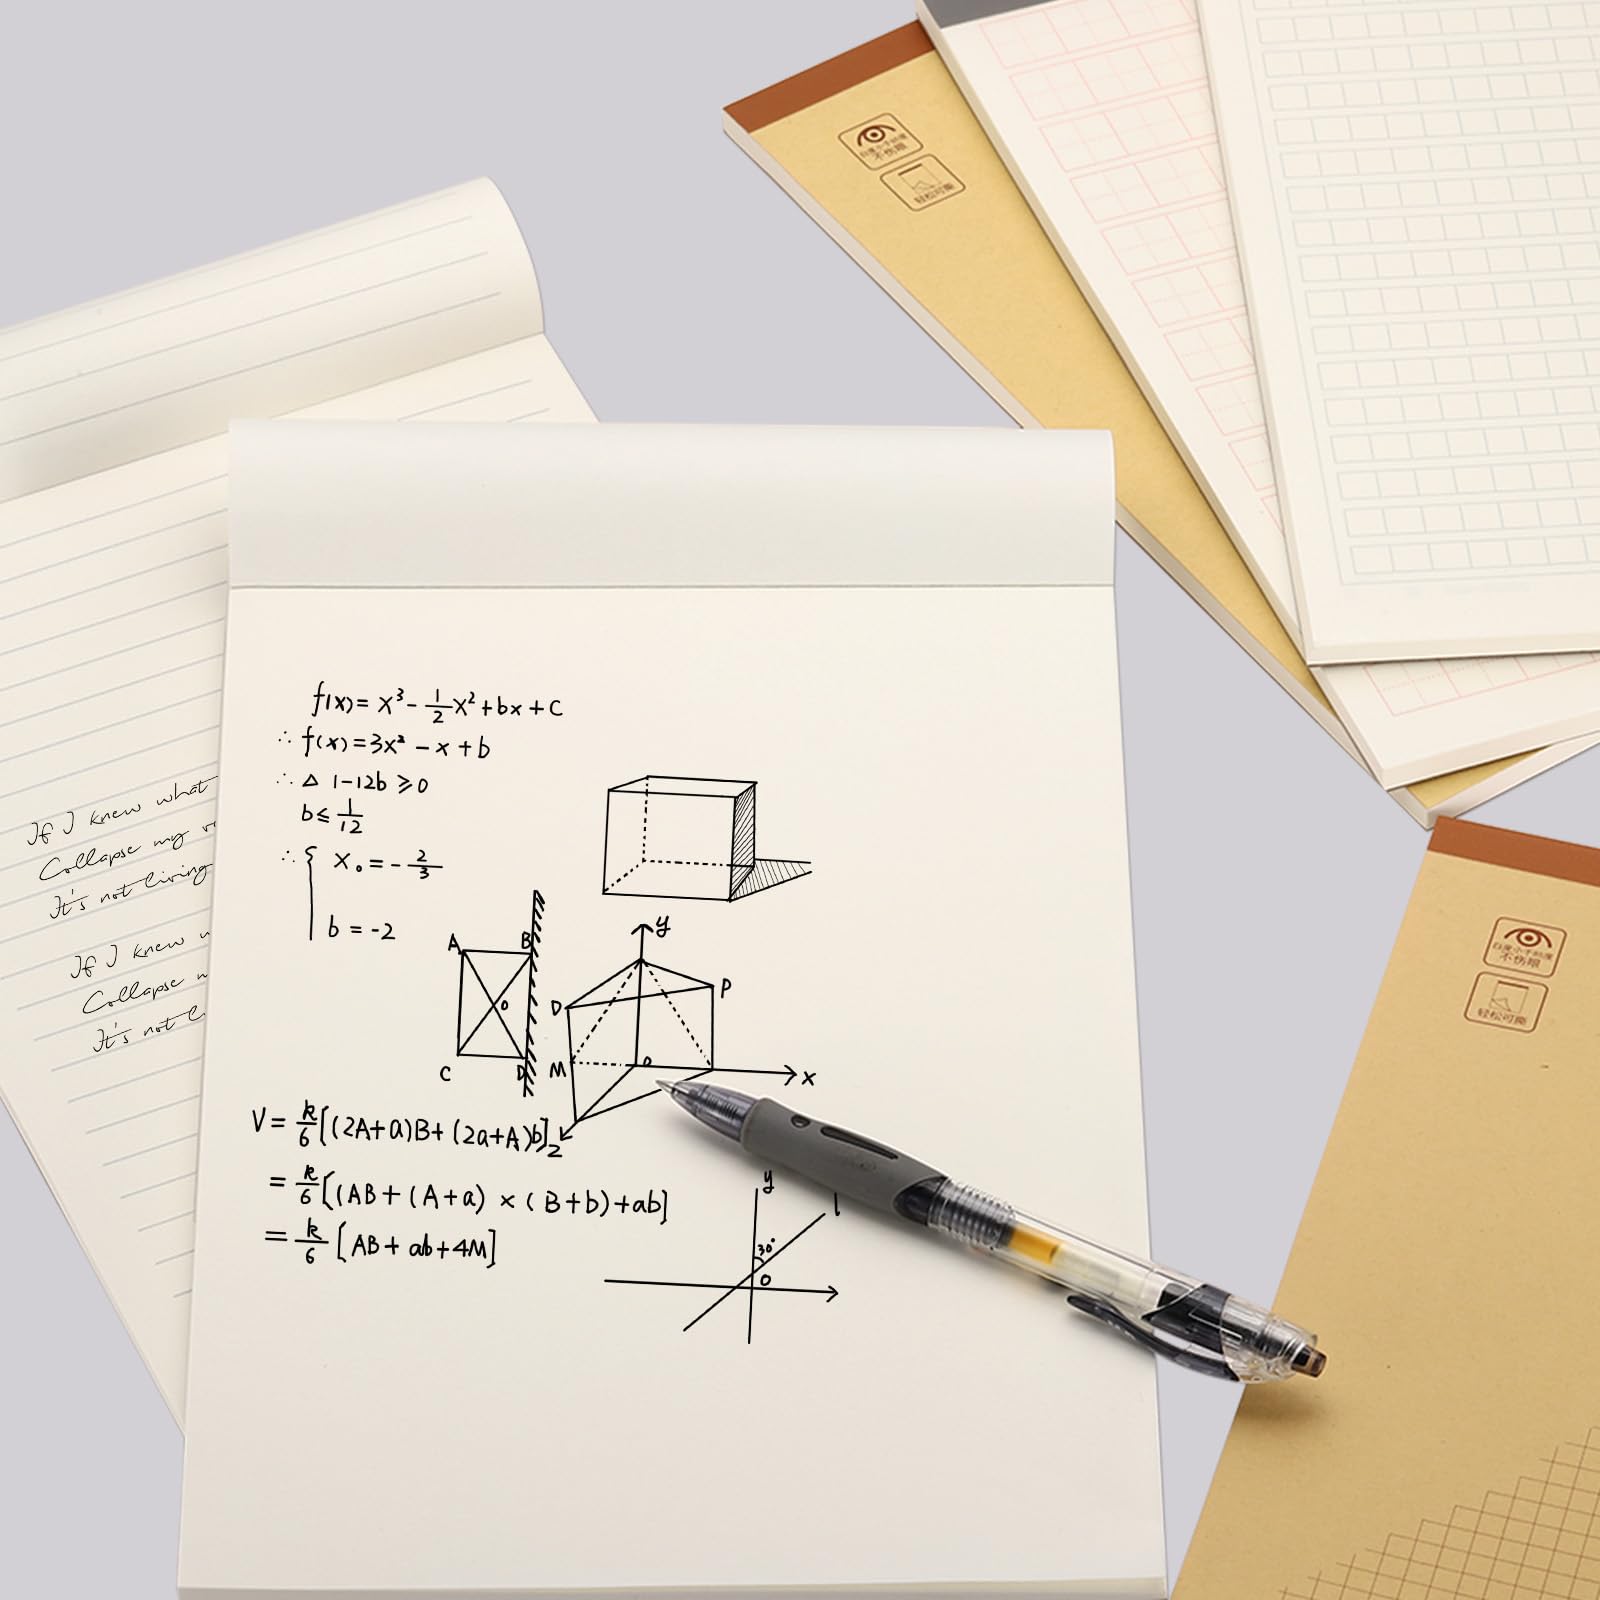 白度小于85度
不伤眼
轻松可撕
If I knew what
Collapse my
It's not living
If I knew
Collapse
It's not
f(x)= x³- 1/2 x²+bx+c
∴ f(x)=3x² - x + b
∴ △ 1-12b ≥ 0
b ≤ 1/12
∴ { x₀ = - 2/3
b = -2
A B
O
C D
y
D P
M O
x
z
V= k/6 [(2A+a)B+(2a+A)b]
= k/6 [(AB+(A+a) × (B+b)+ab]
= k/6 [AB+ab+4M]
y
l
30°
O
白度小于85度
不伤眼
轻松可撕